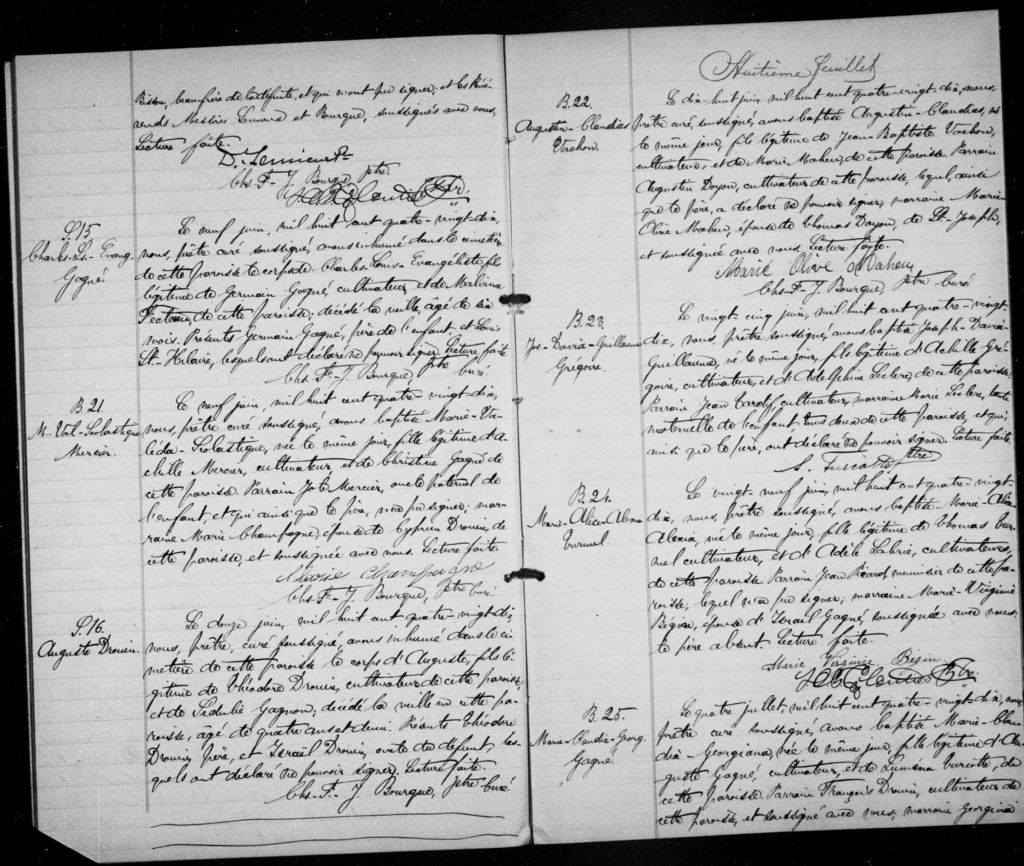 Bisson, beau-frère de la défunte, et qui n'ont pu signer, et les Révé-
rends Messires Lemieux et Bourque, soussignés avec nous,
Lecture faite.
D. Lemieux Ptr
Chs-F-J. Bourque, ptre
S.15
Charles-Ls-Evang.
Gagné
Le neuf juin, mil huit cent quatre-vingt-dix,
nous, prêtre curé soussigné, avons inhumé dans le cimetière
de cette paroisse le corps de Charles-Louis-Evangéliste, fils
légitime de Germain Gagné, cultivateur, et de Malvina
Fecteau, de cette paroisse; décédé la veille, âgé de six
mois. Présents Germain Gagné, père de l'enfant, et Louis
St-Hilaire, lesquels ont déclaré ne pouvoir signer. Lecture faite
Chs-F-J. Bourque, ptre curé
B 21.
M. Val-Scolastique
Mercier.
Le neuf juin, mil huit cent quatre-vingt-dix,
nous, prêtre curé soussigné, avons baptisé Marie-Va-
léda-Scolastique, née le même jour, fille légitime d'A-
chille Mercier, cultivateur, et de Christine Gagné de
cette paroisse. Parrain Mercier, oncle paternel de
l'enfant, et qui ainsi que le père, n'a pu signer; mar-
raine Marie Champagne, épouse de Cyprien Drouin, de
cette paroisse, et soussignée avec nous. Lecture faite.
Marie Champagne
Chs-F-J. Bourque, ptre curé
S.16.
Auguste Drouin.
Le douze juin, mil huit cent quatre-vingt-dix,
nous, prêtre, curé soussigné, avons inhumé dans le ci-
metière de cette paroisse le corps d'Auguste, fils lé-
gitime de Théodore Drouin, cultivateur de cette paroisse,
et de Sédulie Gagnon; décédé la veille en cette pa-
roisse, âgé de quatre ans et demi. Présents Théodore
Drouin, père, et Israël Drouin, oncle du défunt, les-
quels ont déclaré ne pouvoir signer. Lecture faite.
Chs-F-J. Bourque, ptre curé.
Huitième feuillet
B.22.
Augustin-Claudias
Vachon.
Le dix-huit juin, mil huit cent quatre-vingt-dix, nous,
prêtre curé, soussigné, avons baptisé Augustin-Claudias, né
le même jour, fils légitime de Jean-Baptiste Vachon,
cultivateur, et de Marie Maheu, de cette paroisse. Parrain
Augustin Doyon, cultivateur de cette paroisse, lequel, ainsi
que le père, a déclaré ne pouvoir signer; marraine Marie
Olive Maheu, épouse de Thomas Doyon, de St-Joseph,
et soussignée avec nous. Lecture faite.
Marie Olive Maheu
Chs-F-J. Bourque, ptre curé
B.23.
Jos-David-Guillaume
Grégoire.
Le vingt-cinq juin, mil huit cent quatre-vingt-
dix, nous, prêtre soussigné, avons baptisé Joseph-David-
Guillaume, né le même jour, fils légitime d'Achille Gré-
goire, cultivateur, et d'Adelphine Leclerc de cette paroisse;
Parrain Jean cultivateur, marraine Marie Leclerc, tante
maternelle de l'enfant, tous deux de cette paroisse et qui,
ainsi que le père, ont déclaré ne pouvoir signer. Lecture faite.
ptre
B.24.
Marie-Alice-Alexia
Turmel.
Le vingt-neuf juin, mil huit cent quatre-vingt-
dix, nous, prêtre soussigné, avons baptisé Marie-Alice
Alexia, née le même jour, fille légitime de Thomas Tur-
mel cultivateur, et d'Adèle Labrie, cultivateurs,
de cette paroisse. Parrain Jean Picard, meunier de cette pa-
roisse, lequel n'a pu signer; marraine Marie-Virginie
Bégin, épouse d'Israël Gagné, soussignée avec nous;
le père absent. Lecture faite.
Marie Virginie Bégin
B.25.
Marie-Claudia-Georg.
Gagné.
Le quatre juillet, mil huit cent quatre-vingt-dix, nous,
prêtre curé soussigné, avons baptisé Marie-Clau-
dia-Georgiana, née le même jour, fille légitime d'Au-
guste Gagné, cultivateur, et de Luména Turcotte, de
cette paroisse. Parrain François Drouin, cultivateur de
cette paroisse, et soussigné avec nous, marraine Georgina